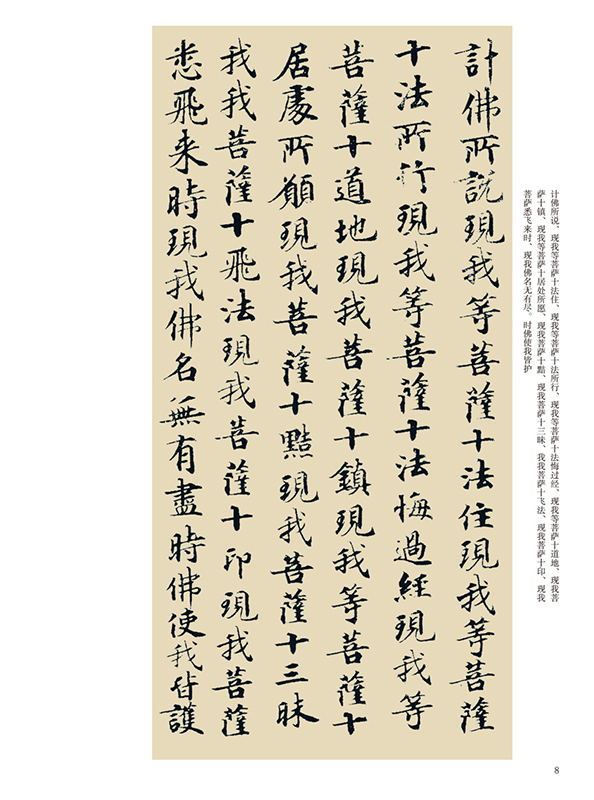 计佛所说、现我等菩萨十法住、现我等菩萨十法所行、现我等菩萨十法悔过经、现我等菩萨十道地、现我菩
萨十镇、现我等菩萨十居处所愿、现我菩萨十黠、现我菩萨十三昧、我我菩萨十飞法、现我菩萨十印、现我
菩萨悉飞来时、现我佛名无有尽。时佛使我皆护
計佛所説現我等菩薩十法住現我等菩薩
十法所行現我等菩薩十法悔過經現我等
菩薩十道地現我菩薩十鎮現我等菩薩十
居處所願現我菩薩十黠現我菩薩十三昧
我我菩薩十飛法現我菩薩十印現我菩薩
悉飛来時現我佛名無有盡時佛使我皆護
8